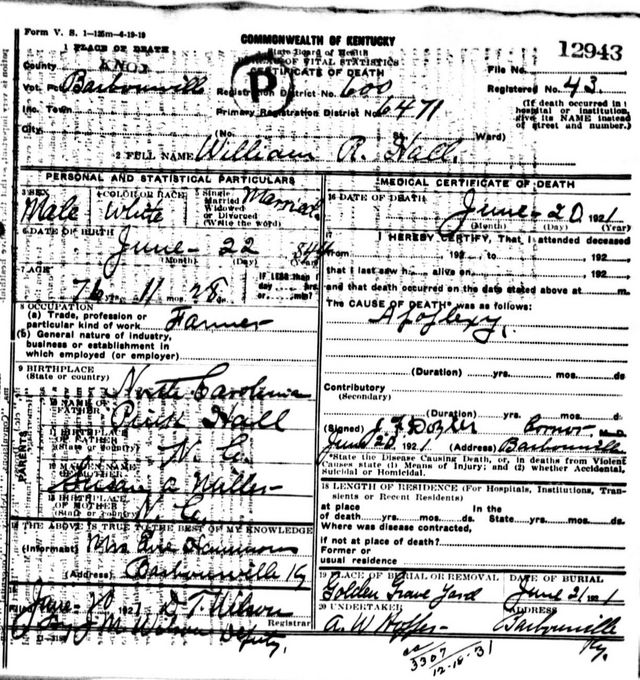 Form V. S. 1—125m—6-19-19
COMMONWEALTH OF KENTUCKY
State Board of Health
BUREAU OF VITAL STATISTICS
CERTIFICATE OF DEATH
12943
1 PLACE OF DEATH
County KNOX
File No.
Vot. Pct. Barbourville
Registration District No. 600
Registered No. 43
Inc. Town
Primary Registration District No. 6471
(If death occurred in a hospital or institution, give its NAME instead of street and number.)
City
(No. St. Ward)
2 FULL NAME William R. Hall.
PERSONAL AND STATISTICAL PARTICULARS
3 SEX Male
4 COLOR OR RACE White
5 Single Married Widowed or Divorced (Write the word) Married
6 DATE OF BIRTH June - 22 844
(Month) (Day) (Year)
7 AGE 76 yrs. 11 mos. 28 ds.
IF LESS than 1 day hrs. or min.
8 OCCUPATION
(a) Trade, profession or particular kind of work Farmer
(b) General nature of industry, business or establishment in which employed (or employer)
9 BIRTHPLACE
(State or country) North Carolina
PARENTS
10 NAME OF FATHER Hall
11 BIRTHPLACE OF FATHER (State or country) N. C.
12 MAIDEN NAME OF MOTHER Susan a Miller
13 BIRTHPLACE OF MOTHER (State or country) N. C.
14 THE ABOVE IS TRUE TO THE BEST OF MY KNOWLEDGE
(Informant) Mrs Hammons
(Address) Barbourville Ky
Filed June - 20 1921 D. T. Wilson
Registrar
By J M Wilson Deputy
MEDICAL CERTIFICATE OF DEATH
16 DATE OF DEATH June - 20 1921
(Month) (Day) (Year)
17 I HEREBY CERTIFY, That I attended deceased
from , 192 to , 192
that I last saw h alive on , 192
and that death occurred on the date stated above at m.
The CAUSE OF DEATH* was as follows:
Apoplexy,
(Duration) yrs. mos. ds
Contributory
(Secondary)
(Duration) yrs. mos. ds.
(Signed) Cornor M. D.
June 20 1921 (Address) Barbourville
*State the Disease Causing Death, or, in deaths from Violent Causes state (1) Means of Injury; and (2) whether Accidental, Suicidal or Homicidal.
18 LENGTH OF RESIDENCE (For Hospitals, Institutions, Transients or Recent Residents)
at place of death yrs. mos. ds. In the State yrs. mos. ds.
Where was disease contracted,
if not at place of death?
Former or usual residence
19 PLACE OF BURIAL OR REMOVAL Golden Grave Yard
DATE OF BURIAL June 21 1921
20 UNDERTAKER A. W. Hopper
ADDRESS Barbourville Ky.
3307
12-18-31